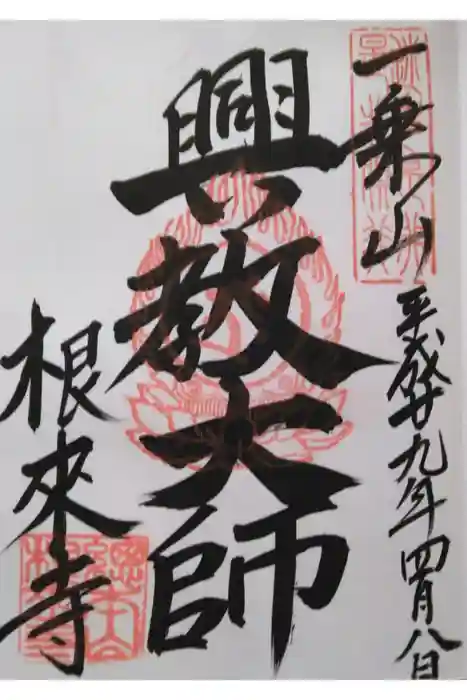 一乗山
平成廿九年四月八日
興教大師
根來寺